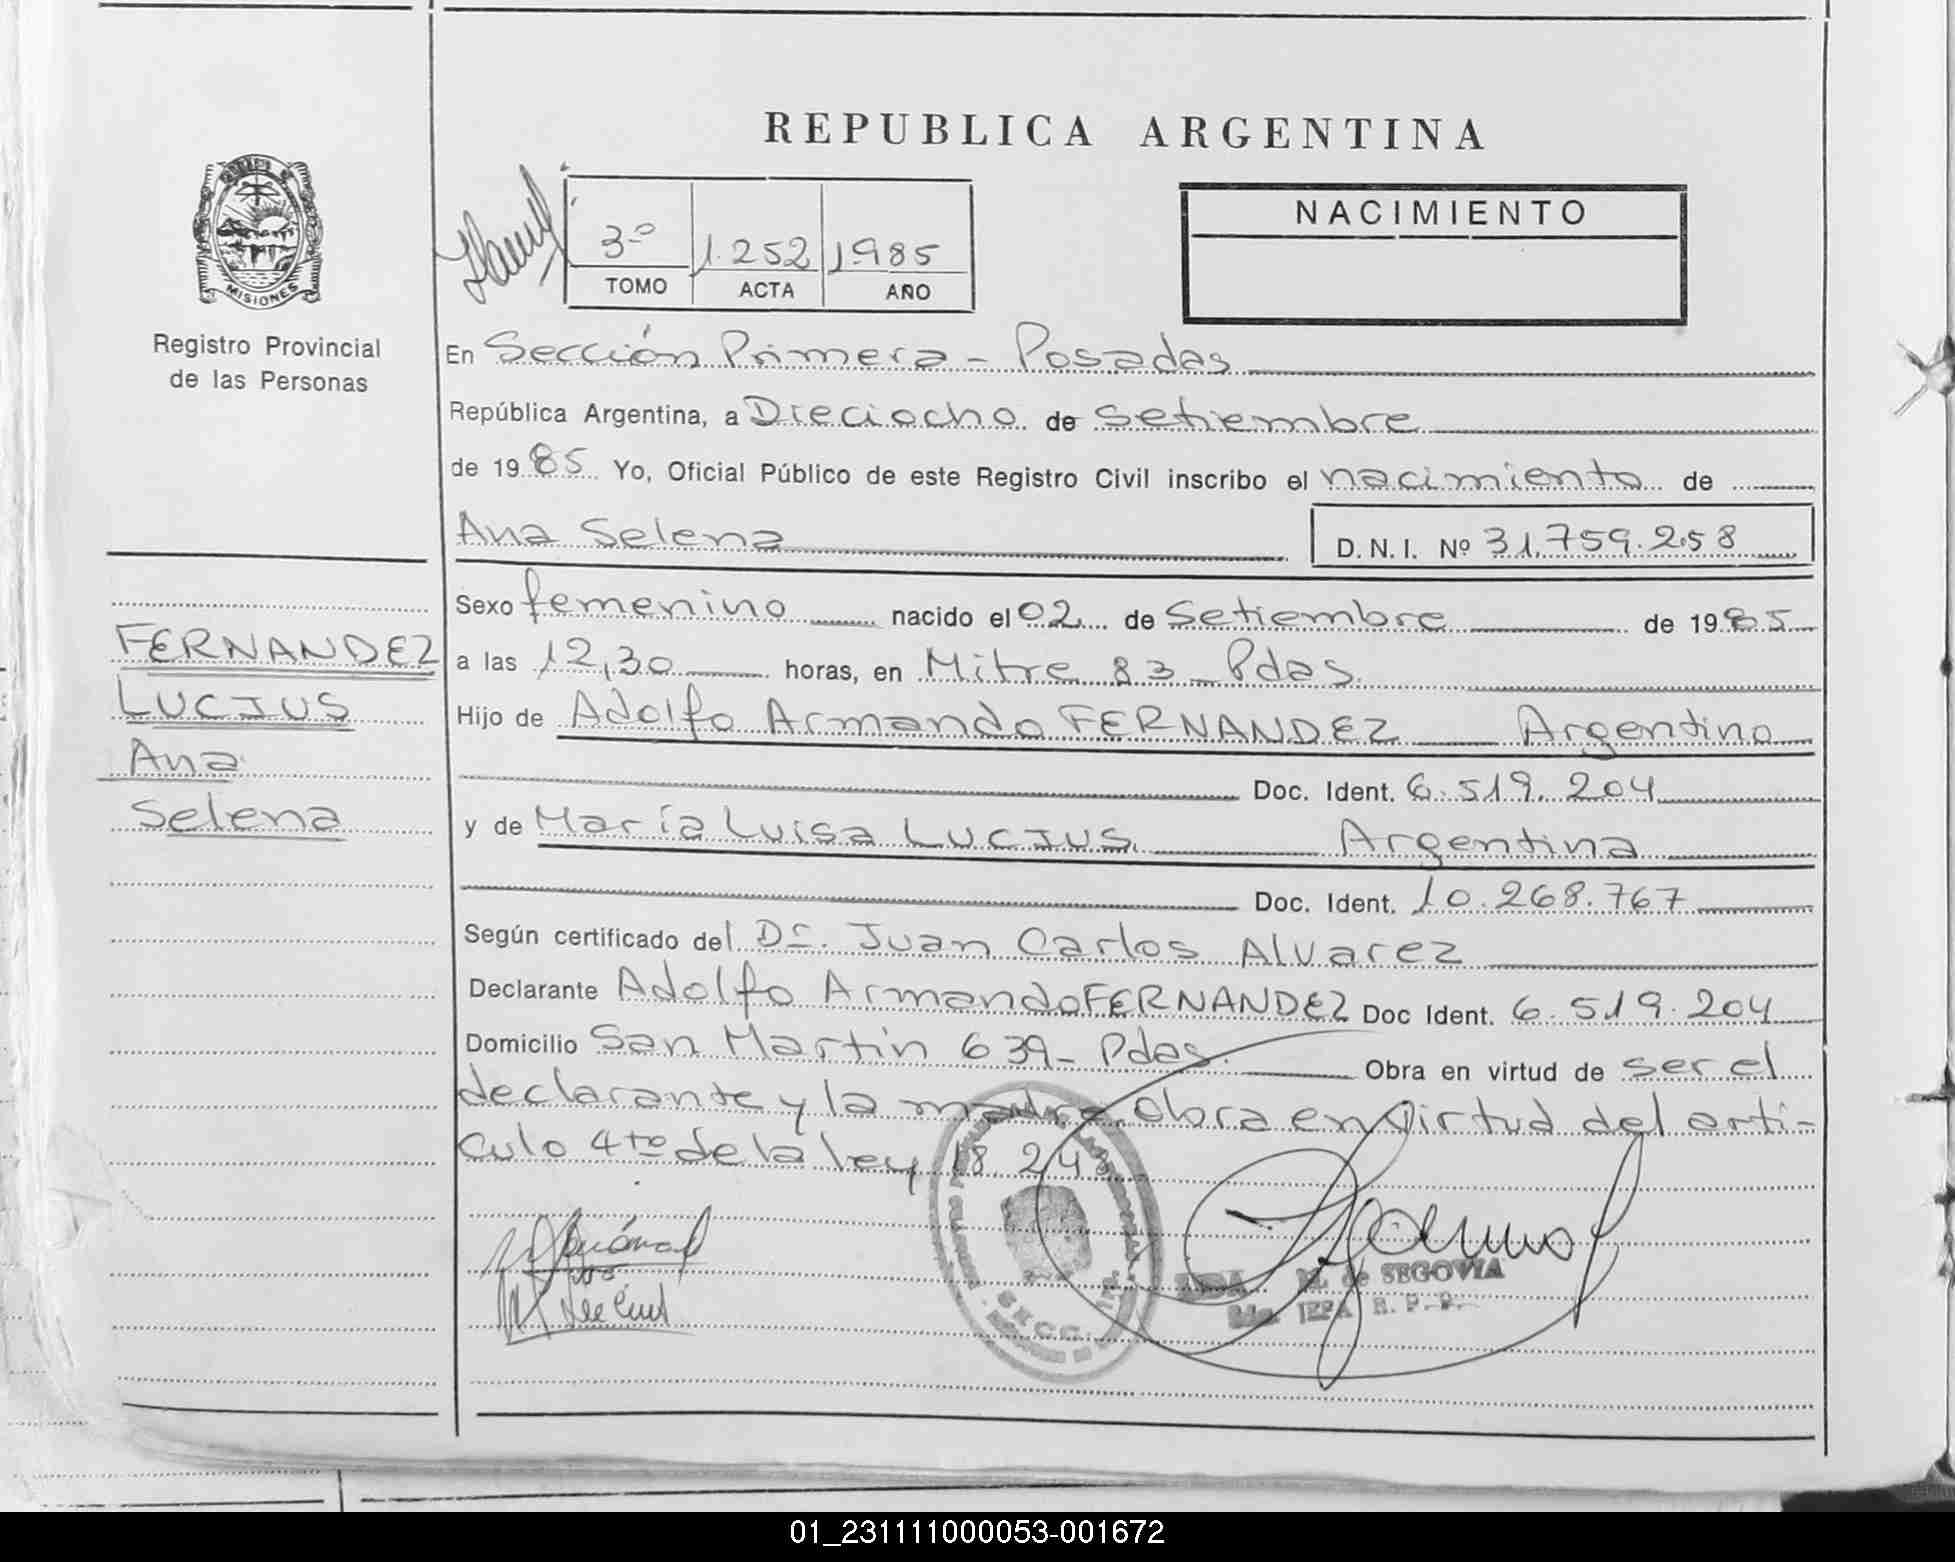 REPUBLICA ARGENTINA
MISIONES
Registro Provincial
de las Personas
3º 1.252 1985
TOMO ACTA AÑO
NACIMIENTO
En Sección Primera - Posadas
República Argentina, a Dieciocho de Setiembre
de 1985 Yo, Oficial Público de este Registro Civil inscribo el nacimiento de
Ana Selena D.N.I. Nº 31.759.258
FERNANDEZ
LUCIUS
Ana
Selena
Sexo femenino nacido el 02 de Setiembre de 1985
a las 12,30 horas, en Mitre 83 - Pdas.
Hijo de Adolfo Armando FERNANDEZ Argentino
Doc. Ident. 6.519.204
y de María Luisa LUCIUS. Argentina
Doc. Ident. 10.268.767
Según certificado del Dr. Juan Carlos Alvarez
Declarante Adolfo Armando FERNANDEZ Doc Ident. 6.519.204
Domicilio San Martín 639 - Pdas. Obra en virtud de ser el
declarante y la madre obra en virtud del arti-
culo 4to de la ley 18.248
M. de SEGOVIA
R. P. P.
SECC.
01_231111000053-001672